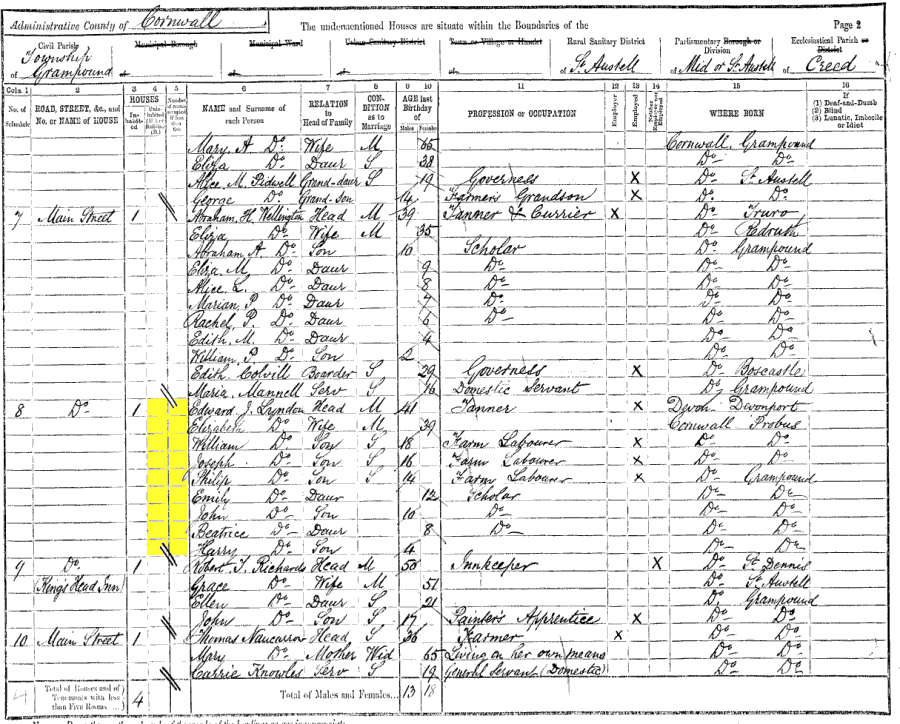 Administrative County of Cornwall The undermentioned Houses are situate within the Boundaries of the Page 2
Civil Parish Municipal Borough Municipal Ward Urban Sanitary District Town or Village or Hamlet Rural Sanitary District Parliamentary Borough or Division Ecclesiastical Parish or District
Township of Grampound of of of of of St. Austell of Mid or St. Austell of Creed
Cols. 1 2 3 4 5 6 7 8 9 10 11 12 13 14 15 16
No. of Schedule ROAD, STREET, &c., and No. or NAME of HOUSE HOUSES Inhabited NAME and Surname of each Person RELATION to Head of Family CONDITION as to Marriage AGE last Birthday of Males Females PROFESSION or OCCUPATION Employer Employed Neither Employer nor Employed WHERE BORN (1) Deaf-and-Dumb (2) Blind (3) Lunatic, Imbecile or Idiot
Mary, A Do Wife M 65 Cornwall, Grampound
Eliza Do Daur S 38 Do Do
Alice M. Pidwell Grand-daur S 19 Governess X Do St. Austell
George Do Grand-son 14 Farmers Grandson X Do Do
7 Main Street 1 Abraham, H. Wellington Head M 39 Tanner & Currier X Do Truro
Eliza Do Wife M 35 Do Redruth
Abraham A. Do Son 10 Scholar Do Grampound
Eliza M. Do Daur 9 Do Do Do
Alice L. Do Daur 8 Do Do Do
Marian P. Do Daur 7 Do Do Do
Rachel P. Do Daur 6 Do Do Do
Edith M. Do Daur 4 Do Do
William P. Do Son 2 Do Do
Edith Colvill Boarder S 29 Governess X Do Boscastle
Maria Mannell Serv S 16 Domestic Servant Do Grampound
8 Do 1 Edward J. Lyndon Head M 41 Tanner X Devon Devonport
Elizabeth Do Wife M 39 Cornwall Probus
William Do Son S 18 Farm Labourer X Do Do
Joseph Do Son S 16 Farm Labourer X Do Do
Philip Do Son S 14 Farm Labourer X Do Grampound
Emily Do Daur 12 Scholar Do Do
John Do Son 10 Do Do Do
Beatrice Do Daur 8 Do Do Do
Harry Do Son 4 Do Do
9 Do 1 Robert T. Richards Head M 55 Innkeeper X Do St. Dennis
(Kings Head Inn) Grace Do Wife M 51 Do St. Austell
Ellen Do Daur S 21 Do Grampound
John Do Son S 17 Painter's Apprentice X Do Do
10 Main Street 1 Thomas Nancarrow Head S 36 Farmer X Do Do
Mary Do Mother Wid 65 Living on her own means Do Do
Carrie Knowles Serv S 19 General Servant (Domestic) Do Do
Total of Houses and of Tenements with less than Five Rooms 4 Total of Males and Females... 13 18